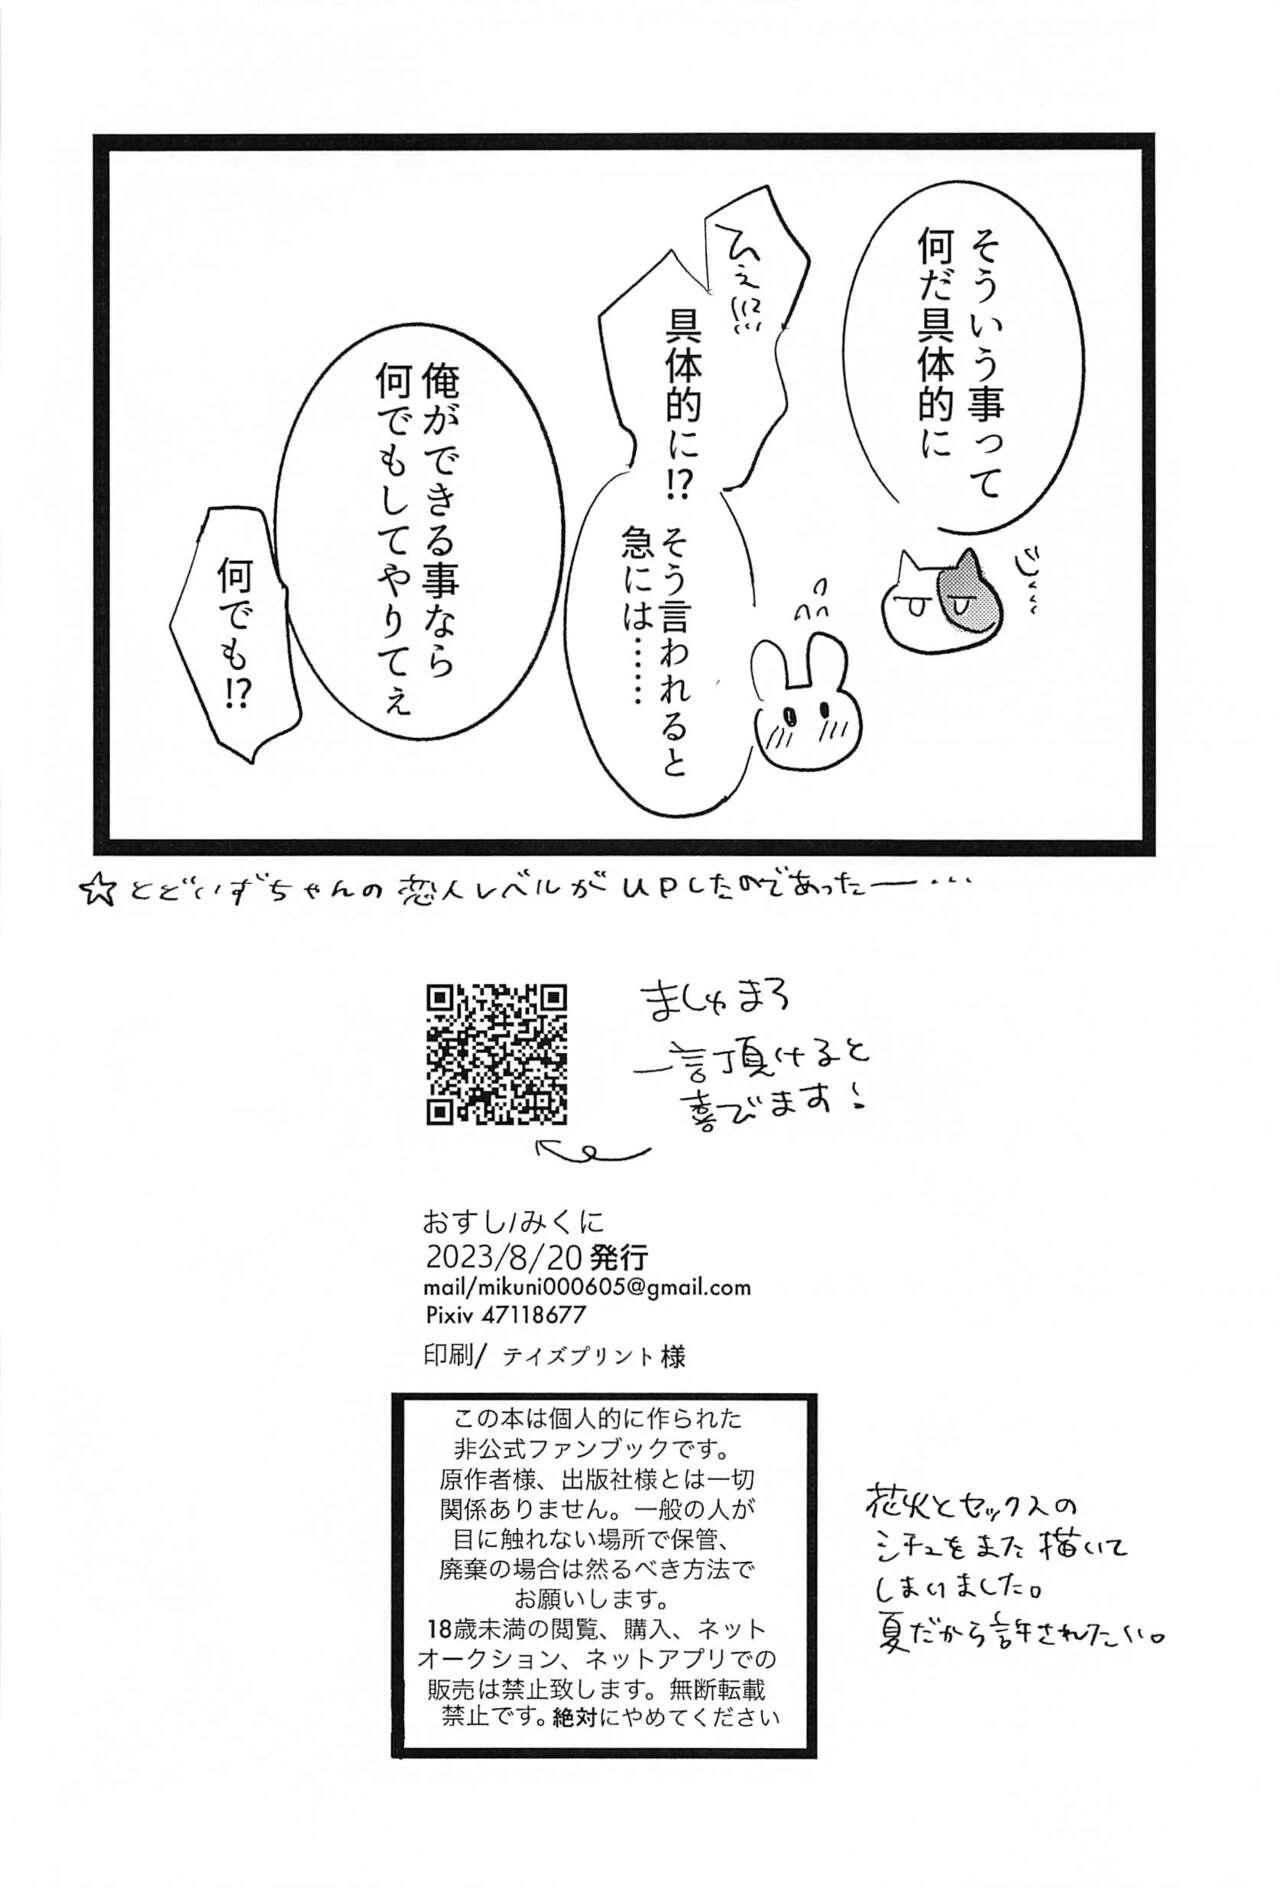 そういう事って
何だ具体的に
じ…
ひぇ!!!
具体的に!?
そう言われると
急には……
俺ができる事なら
何でもしてやりてぇ
何でも!?
☆とどいずちゃんの恋人レベルがUPしたのであったー…
ましゅまろ
一言頂けると
喜びます!
おすし/みくに
2023/8/20 発行
mail/mikuni000605@gmail.com
Pixiv 47118677
印刷/ テイズプリント様
この本は個人的に作られた
非公式ファンブックです。
原作者様、出版社様とは一切
関係ありません。一般の人が
目に触れない場所で保管、
廃棄の場合は然るべき方法で
お願いします。
18歳未満の閲覧、購入、ネット
オークション、ネットアプリでの
販売は禁止致します。無断転載
禁止です。絶対にやめてください
花火とセックスの
シチュをまた描いて
しまいました。
夏だから許されたい。